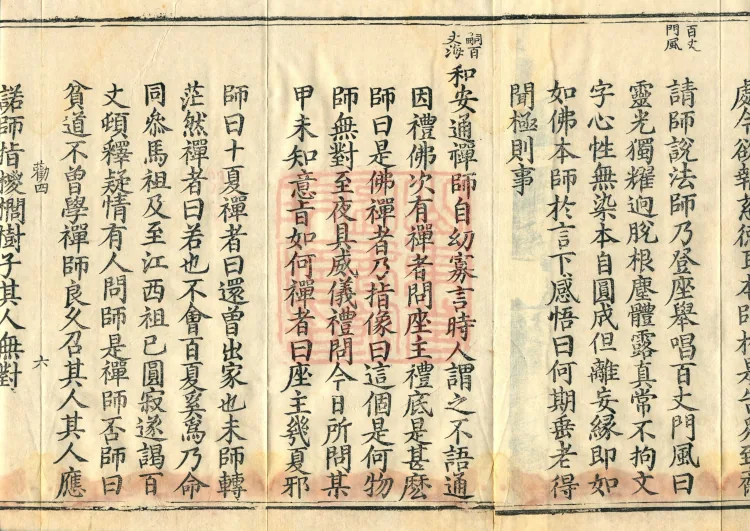 百丈
門風
請師說法師乃登座舉唱百丈門風曰
靈光獨耀迥脫根塵體露真常不拘文
字心性無染本自圓成但離妄縁即如
如佛本師於言下感悟曰何期垂老得
聞極則事
嗣百
丈海
和安通禪師自幼寡言時人謂之不語通
因禮佛次有禪者問座主禮底是甚麽
師曰是佛禪者乃指像曰這個是何物
師無對至夜具威儀禮問今日所問某
甲未知意旨如何禪者曰座主幾夏邪
師曰十夏禪者曰還曾出家也未師轉
茫然禪者曰若也不會百夏奚爲乃命
同叅馬祖及至江西祖已圓寂遂謁百
丈頓釋疑情有人問師是禪師否師曰
貧道不曾學禪師良久召其人其人應
勸四 六
諾師指椶櫚樹子其人無對